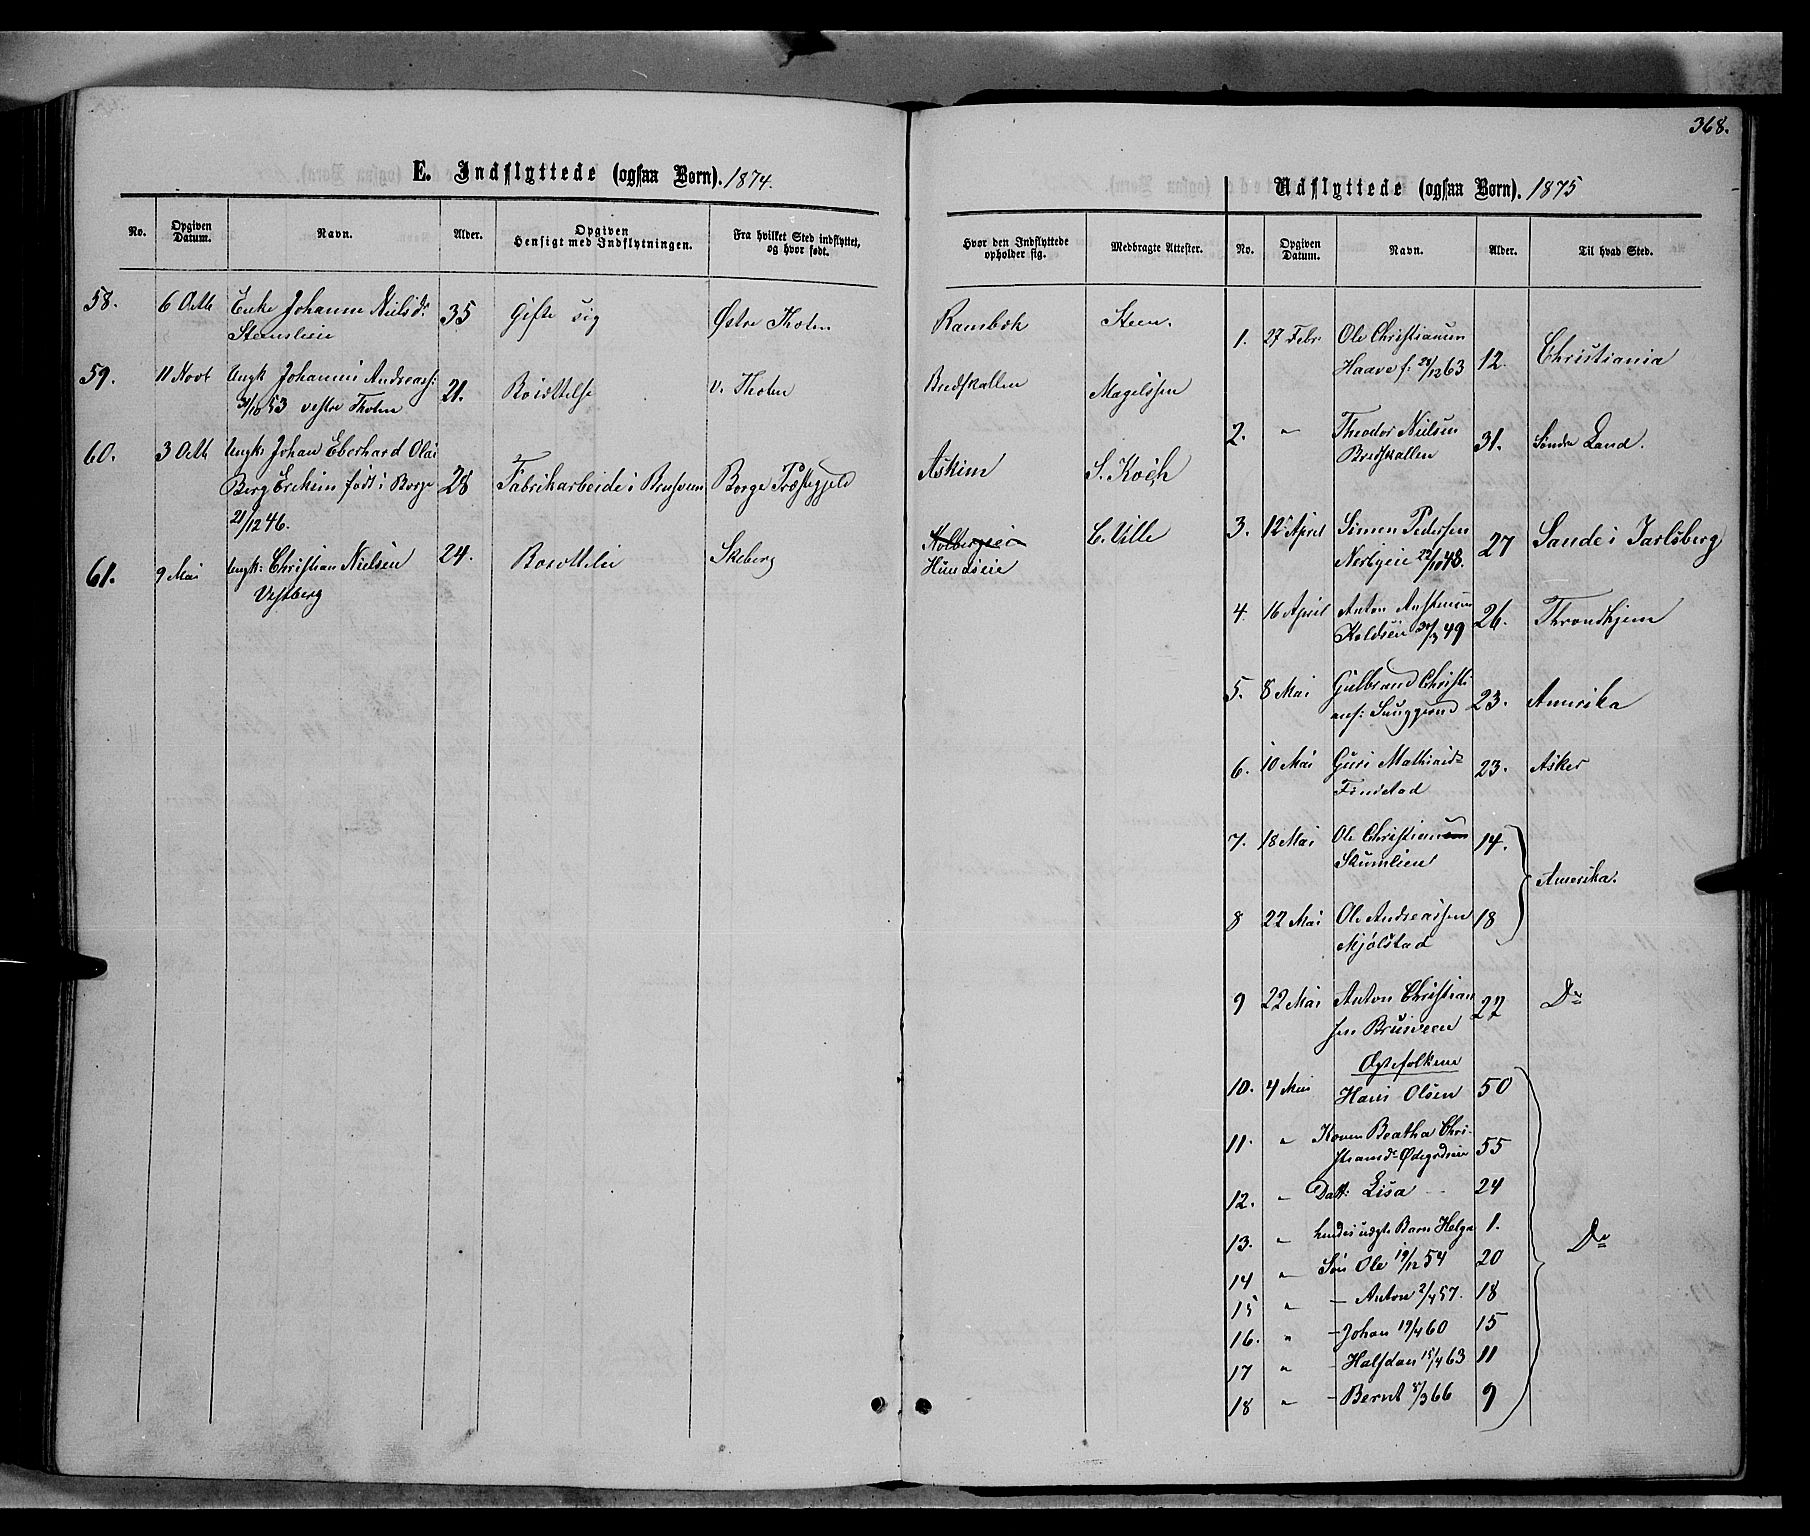 368.
E. Indflyttede (ogsaa Børn). 1874.
No.
Opgiven Datum.
Navn.
Alder.
Opgiven Hensigt med Indflytningen.
Fra hvilket Sted indflyttet, og hvor født.
Hvor den Indflyttede opholder sig.
Medbragte Attester.
58. 6 Octb Enke Johanne Nielsd: 35 Gifte sig Østre Thoten Ramsbok Steen.
59. 11 Novb Ungk Johannes Andreass: 21. v. Thoten Bredskallen Magelssen
31/10 53 vestre Thoten
60. 3 Octb Ungk: Johan Eberhard Olai
Berg Eriksen født i Borge 28 Fabrikarbeide i Borge Præstegjeld Askim S. Koch
21/12 46.
61. 9 Mai Ungk: Christian Nielsen 24. Skeberg C. Ville
Vestberg
Udflyttede (ogsaa Børn). 1875
No.
Opgiven Datum.
Navn.
Alder.
Til hvad Sted.
1. 27 Febr Ole Christiansen
Haave f: 21/12 63 12. Christiania
2. " Theodor Nielsen
Bredskallen 31. Søndre Land.
3. 12 April Simen Pedersen
22/10 48. 27 Sande i Jarlsberg
4. 16 April Anton 26. Throndhjem
5. 8 Mai Gulbrand Christi
ans: 23. Amerika
6. 10 Mai Guri Mathiasd: 23. Asker
Finstad
7. 18 Mai Ole Christian 14.
Skumlien
Amerika.
8 22 Mai Ole Andreassen 18
Mjølstad
9 22 Mai Anton Christian 22 Do
sen Brusveen
Ægtefolkene
10. 4 Mai Hans Olsen 50
11. " Konen Beatha Chri-
stiansd: Ødegrdseie 55
12. " Datt: Lisa 24
13. " hendes uægte Barn Helga 1.
Do
14 " Søn Ole 19/12 54 20
15 " - Anton 2/4 57. 18
16. " - Johan 19/4 60 15
17 " - Halfdan 15/4 63 11
18 " - Bernt 8/3 66 9